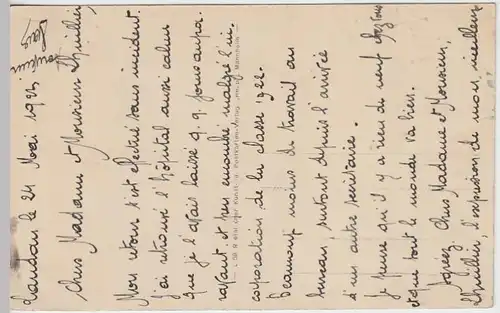 Landau le 24 Mai 1922
Chers Madame et Monsieur Thuillier,
Mon retour s'est effectué sans incident.
J'ai retrouvé l'hôpital aussi calme
que je l'avais laissé q.q. jours aupa-
ravant et peu encombré malgré l'in-
corporation de la classe 1922.
Beaucoup moins de travail au
bureau, surtout depuis l'arrivée
d'un autre secrétaire.
Je pense qu'il y a rien de neuf chez vous
et que tout le monde va bien.
Agréez Chers Madame et Monsieur,
Thuillier, l'expression de mon meilleur